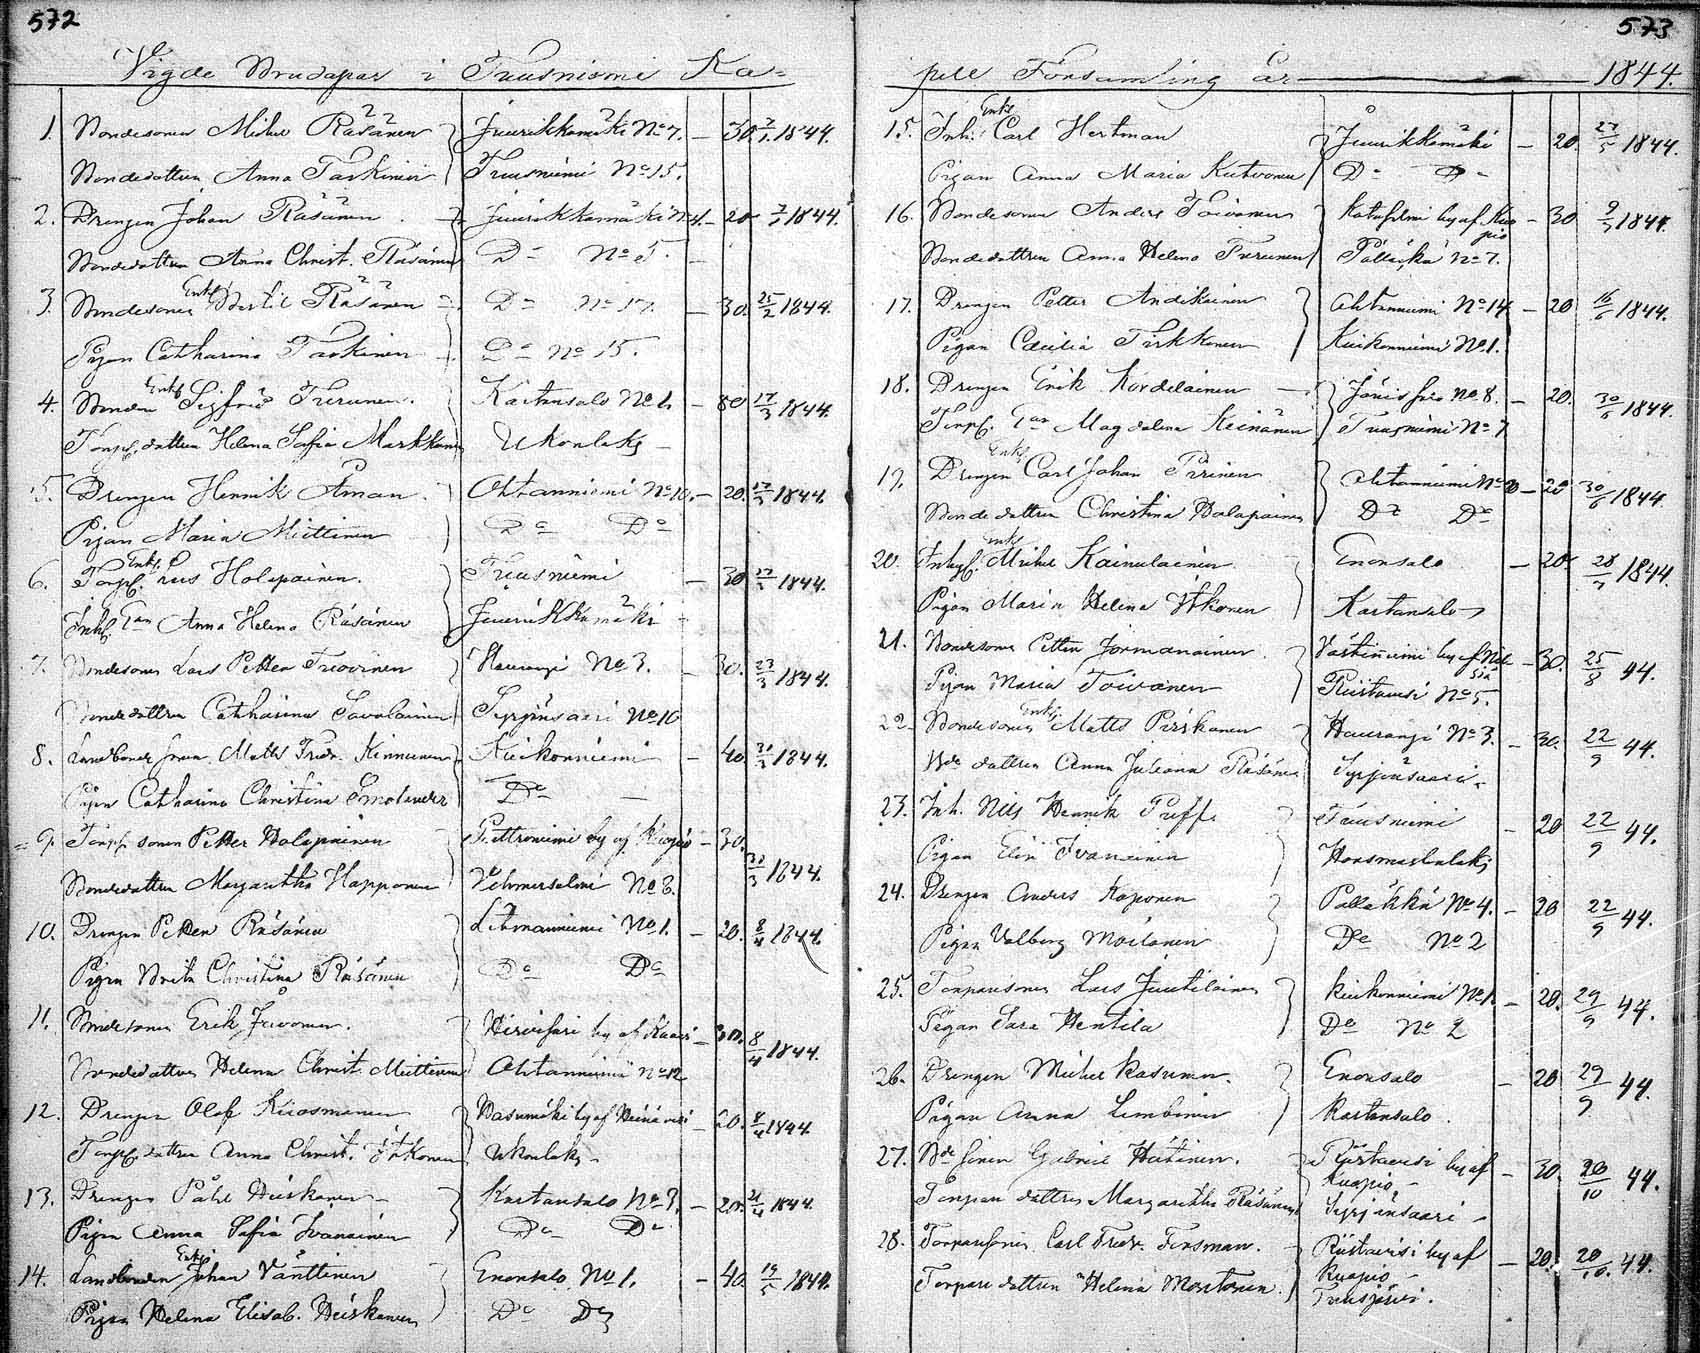 572
Vigde Brudapar i Tuusniemi Ka=
1. Bondesonen Michel Räsänen Juurikkamäki No 7. – 30. 7/1 1844.
Bondedottren Anna Taskinen Tuusniemi No 15.
2. Drengen Johan Räsänen Juurikkamäki No 4. – 20 1844.
Bondedottren Anna Christ. Räsänen Do No 5.
3. Bondesonen Enkl. Bertil Räsänen Do No 17. – 30. 25/2 1844.
Pigan Catharina Taskinen Do No 15.
4. Bonden Enkl. Sigfrid Turunen. Kartansalo No 1. – 80 17/3 1844.
Torp. dottren Helena Sofia Markkanen Ukonlaks
5. Drengen Henrik Åman. Ohtanniemi No 10. – 20. 17/3 1844.
Pigan Maria Miettinen Do Do
6. Torp. Enkl. Lars Holopainen. Tuusniemi – 30 1844.
Inh. Anna Helena Räsänen Juurikkamäki
7. Bondeson Lars Petter Tuovinen Haurangi No 3. – 30. 23/3 1844.
Bondedottren Catharina Savolainen Syrjänsaari No 10
8. Landbonde sonen Matts Fredr. Kinnunen Kiukonniemi – 40. 31/3 1844.
Pigan Catharina Christina Smolander Do
9. Torp. sonen Petter Holopainen Puttroniemi by af Kuopio – 30.
Bondedottren Margaretha Happonen Vehmersalmi No 3. 31/3 1844.
10. Drengen Petter Räsänen Litmaniemi No 1. – 20. 8/4 1844.
Pigan Brita Christina Räsänen Do Do
11. Bondesonen Erik Juvonen. Hirvisari by af Kaavi – 30. 8/4 1844.
Bondedottren Helena Christ. Miettinen Ohtanniemi No 12
12. Drengen Olof Kuosmanen Hasumäki by af Heinävesi – 20. 8/4 1844.
Torp. dottren Anna Christ. Itkonen Ukonlaks
13. Drengen Påhl Heiskanen Kartansalo No 3. – 20. 21/4 1844.
Pigan Anna Sofia Ivanainen Do Do
14. Landbonden Enkl. Johan Vänttinen Enonsalo No 1. – 40. 19/5 1844.
Pigan Helena Elisab. Heiskanen Do Do
573
pell Församling år 1844.
15. Inh. Enkl. Carl Hertman Juurikkamäki – 20. 27/5 1844.
Pigan Anna Maria Kutvonen Do Do
16. Bondesonen Anders Toivanen by af Kuopio – 30 1844.
Bondedottren Anna Helena Turunen Pällikkä No 7.
17. Drengen Petter Andikainen Ohtanniemi No 14 – 20 16/6 1844.
Pigan Cæcilia Tirkkonen Kiukonniemi No 1.
18. Drengen Erik Kordelainen No 8. – 20. 30/6 1844.
Torp. Magdalena Keinänen Tuusniemi No 7
19. Drengen Enkl. Carl Johan Pirinen Ohtanniemi – 20 30/6 1844.
Bondedottren Christina Holopainen Do Do
20. Inhys. Enkl. Michel Kainulainen Enonsalo – 20. 28/7 1844.
Pigan Maria Helena Itkonen Kartansalo
21. Bondesonen Petter Jormanainen Västinniemi by af Nilsiä – 30. 25/8 44.
Pigan Maria Toivanen Riistavesi No 5.
22. Bondesonen Enkl. Matts Pirskanen Haurangi No 3. – 30. 22/9 44.
Bde dottren Anna Juliana Räsänen Syrjänsaari
23. Inh. Nils Henrik Puff. Tuusniemi – 20 22/9 44.
Pigan Elin Ivanainen Hosmaslaks
24. Drengen Anders Koponen Pällikkä No 4. – 20 22/9 44.
Pigan Valborg Moilanen Do No 2
25. Torparesonen Lars Juutilainen Kiukonniemi No 1. – 20. 29/9 44.
Pigan Sara Hentilä Do No 2
26. Drengen Michel Kasurinen. Enonsalo – 20 29/9 44.
Pigan Anna Limbinen Kartansalo.
27. Bde sonen Gabriel Huttinen. Riistavesi by af Kuopio – 30. 20/10 44.
Torpare dottren Margaretha Räsänen Syrjänsaari
28. Torparesonen Carl Fredr. Forsman. Riistavesi by af Kuopio – 20. 20/10. 44.
Torpare dottren Helena Martonen. Tuusjärvi.